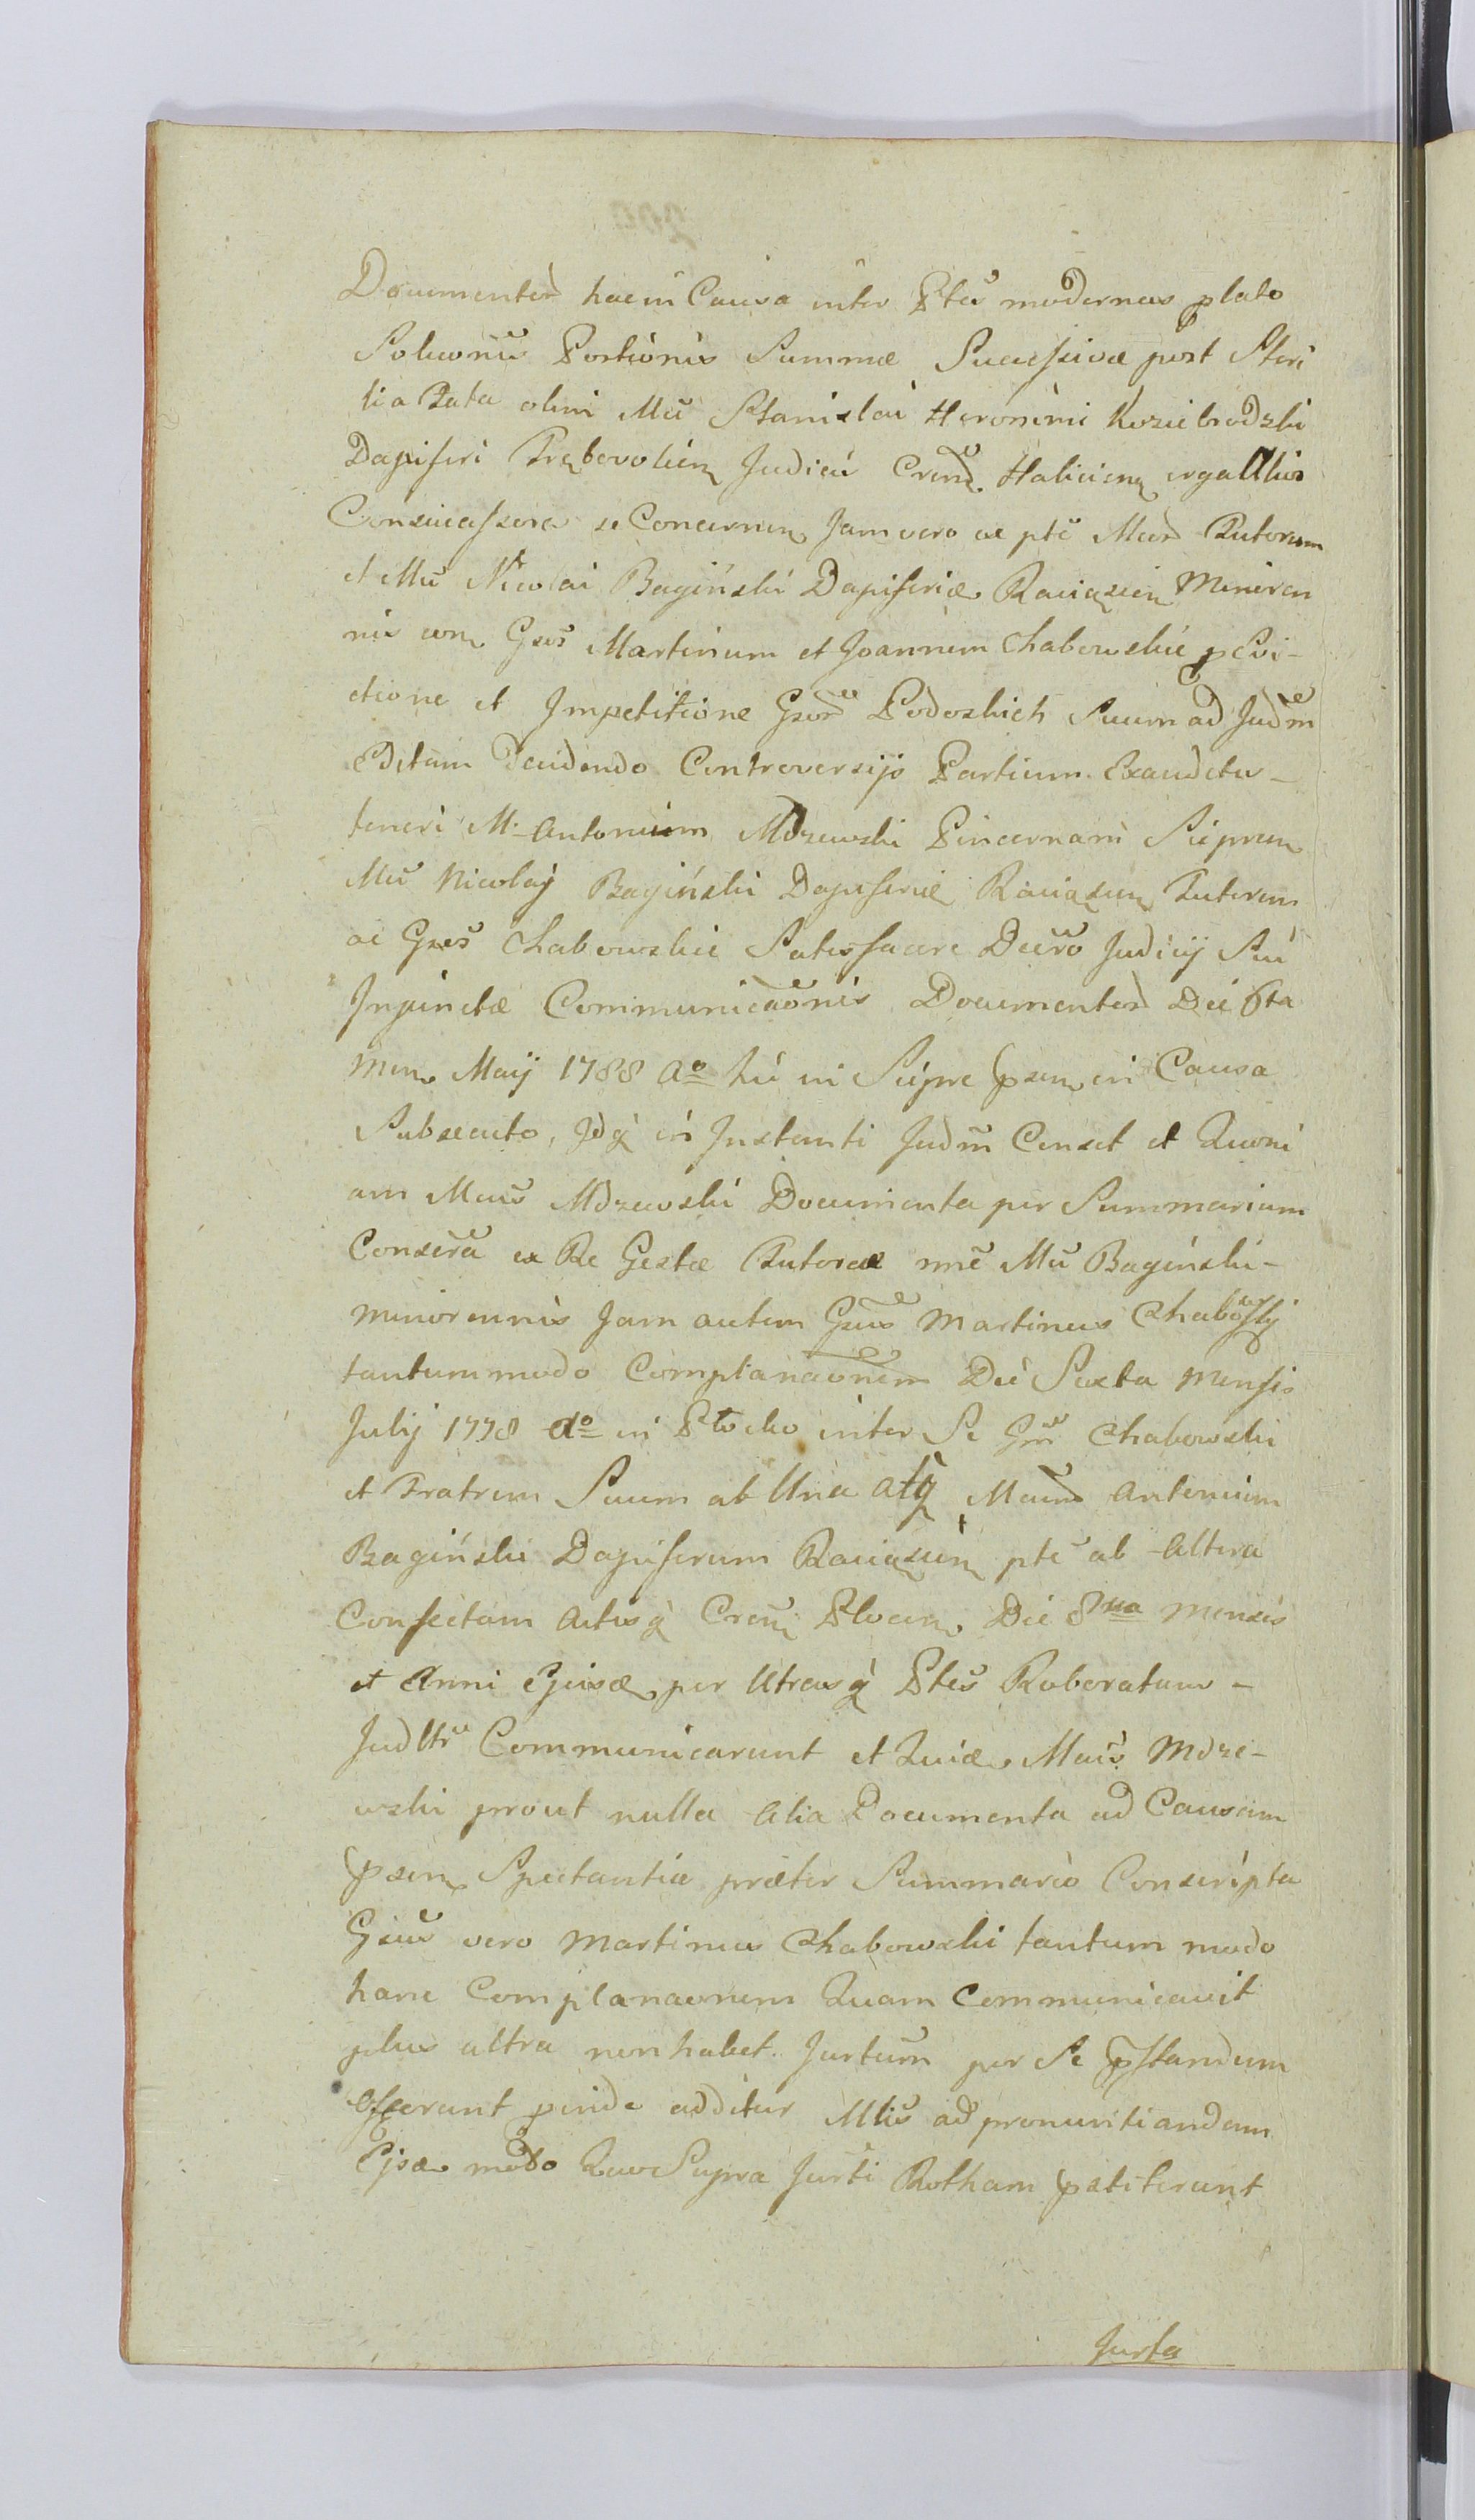 Documentor̃ hac in Causa inter Ptes modernas p̱lato
Soluonis Portionis Summæ Successivæ post Steri
lia Fata olim Mci Stanislai Heronimi Koziebrodzki
Dapiferi Trębovolien Judicis Cren̄d. Halicien erga Alios
Consuccessores se Concernen Jam vero ex pte Mcor̃ Tutorum
et Mci Nicolai Bagiński Dapiferidæ Raciązien Minoren
nis con̄ Gsos Martinum et Joannem Chabowskie p̱ Evi-
ctione et Impetitione Gsor̃ Podoskich Suum ad Judm̃
Editam Decidendo Controversijs Partium Exauditis -
teneri M. Antonium Mdzewski Pincernam Sieprcen
Mci Nicolaj Bagiński Dapiferidæ Raciązien Tutorem
ac Gsos Chabowskie Satisfacere Decr̃o Judicij Sui
Injunctæ Communicaõnis Documentor̃ Die 6ta
Men̄ Maij 1788 Aō hic in Sieprc p̱sen in Causa
Subsecuto, Idq̀ in Instanti Judm̃ Censet et Quoni
am Mcus Mdzewski Documenta per Summarium
Conscr̃a ex Re Gestæ Tutoreæ nn̄e Mci Bagiński -
minorennis Jam autem Gsus Martinus Chabowski
tantummodo Complanaõnem Die Sexta Mensis
Julij 1778 Aō in Płocko inter Se Gm̃ Chabowski
et Fratrem Suum ab Una atq̀ Mcum Antonium
Bagiński Dapiferum Raciązien pte ab Altera
Confectam Actisq̀ Cren̄ Plocen Die 8va Mensis
et Anni Ejusdē per Utrasq̀ Ptes Roboratam -
Jud Utr̃ Communicarunt et Quia Mcus Mdze-
wski prout nulla Alia Documenta ad Causam
p̱sen Spectantia præter Summario Conscripta
Gsus vero Martinus Chabowski tantum modo
hanc Complanaonem Quam Communicavit
plus ultra non habet. Jurtum̃ per Se p̱standum
offerunt p̱inde additur Mlis ad pronuntiandum
modo Quo Supra Jurti Rotham p̱stiterunt
Jurta